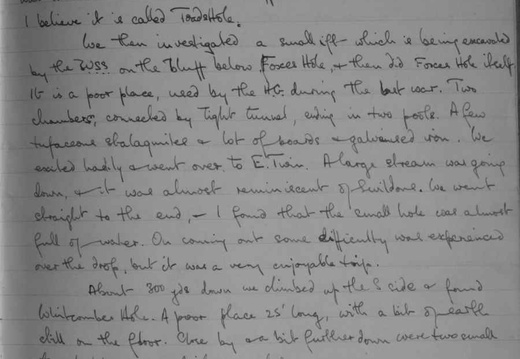 I believe it is called ToadsHole.
We then investigated a small rift which is being excavated
by the BUSS on the bluff below Foxes Hole, & then did Foxes Hole itself
It is a poor place, used by the HG during the last war. Two
chambers, connected by tight tunnel, ending in two pools. A few
tufaceous stalagmites & lot of boards & galvanised iron. We
exited hastily & went over to E. Twin. A large stream was going
down, & it was almost reminiscent of Swildons. We went
straight to the end, – I found that the small hole was almost
full of water. On coming out some difficulty was experienced
over the drop, but it was a very enjoyable trip.
About 300 yds down we climbed up the S side & found
Whitcombes Hole. A poor place 25' long, with a bit of earth
still on the floor. Close by & a bit further down were two small